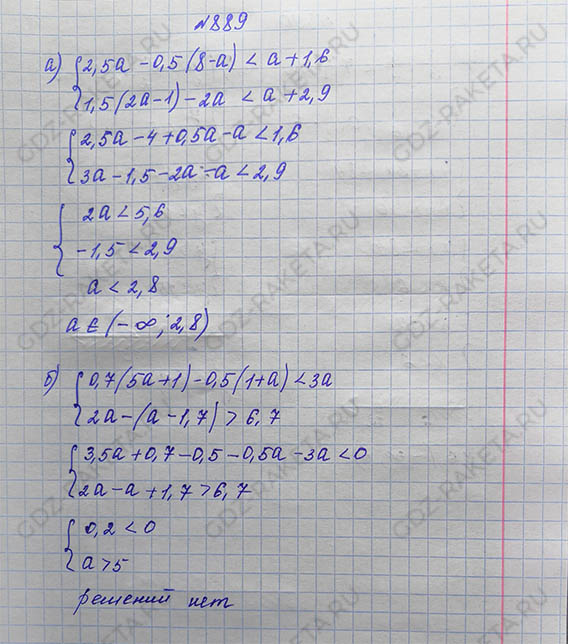 №889
а) { 2,5a - 0,5(8-a) < a + 1,6
1,5(2a-1) - 2a < a + 2,9
{ 2,5a - 4 + 0,5a - a < 1,6
3a - 1,5 - 2a - a < 2,9
{ 2a < 5,6
-1,5 < 2,9
a < 2,8
a ∈ (-∞; 2,8)
б) { 0,7(5a+1) - 0,5(1+a) < 3a
2a - (a - 1,7) > 6,7
{ 3,5a + 0,7 - 0,5 - 0,5a - 3a < 0
2a - a + 1,7 > 6,7
{ 0,2 < 0
a > 5
решений нет
GDZ-RAKETA.RU